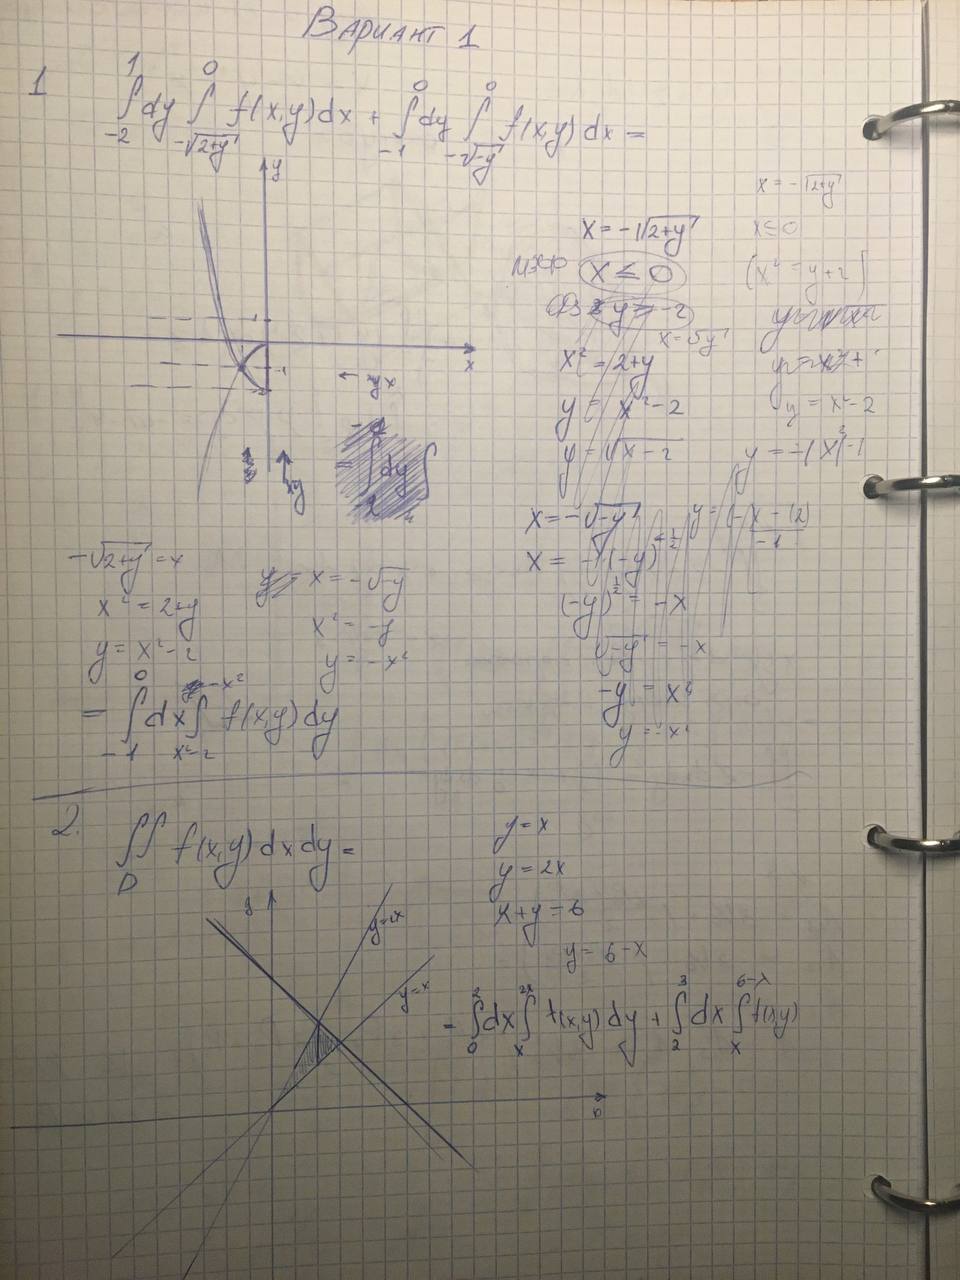 Вариант 1
1
∫_{-2}^{1} dy ∫_{-√(2+y)}^{0} f(x,y)dx + ∫_{-1}^{0} dy ∫_{-√(-y)}^{0} f(x,y)dx =
y
x
x = -√(2+y)
x ≤ 0
(x² = y+2)
y = x²-2
x = -√(2+y)
x ≤ 0
y ≥ -2
x² = 2+y
y = x²-2
y = √(x-2)
x = -√(-y)
x = -(-y)^{1/2}
(-y)^{1/2} = -x
√(-y) = -x
-y = x²
y = -x²
-√(2+y) = x
x² = 2+y
y = x²-2
x = -√(-y)
x² = -y
y = -x²
= ∫_{-1}^{0} dx ∫_{x²-2}^{-x²} f(x,y)dy
2.
∬_D f(x,y)dxdy =
y = x
y = 2x
x+y = 6
y = 6-x
y
y=2x
y=x
= ∫_{0}^{2} dx ∫_{x}^{2x} f(x,y)dy + ∫_{2}^{3} dx ∫_{x}^{6-x} f(x,y)